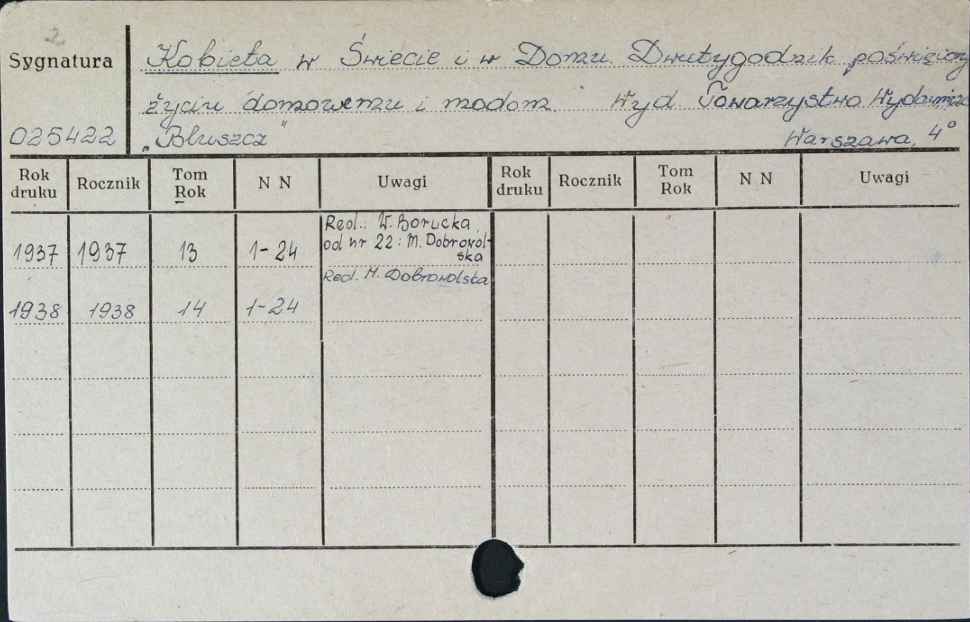 2
Sygnatura Kobieta w Świecie i w Domu. Dwutygodnik poświęcony
życiu domowemu i modom Wyd Towarzystwo Wydawnicze
025422 „Bluszcz" Warszawa, 4°
Rok druku Rocznik Tom Rok N N Uwagi Rok druku Rocznik Tom Rok N N Uwagi
1937 1937 13 1-24 Red.: W. Borucka, od nr 22: M. Dobrowolska
1938 1938 14 1-24 Red. M. Dobrowolska